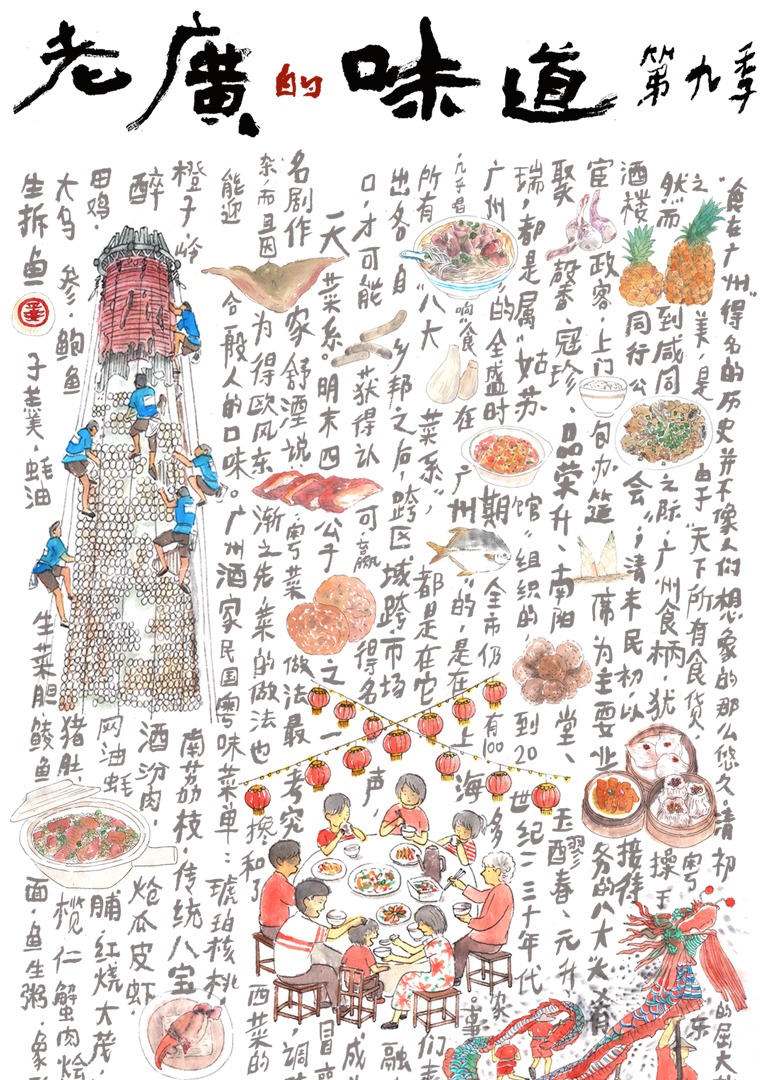 老廣的味道 第九季
"食在广州"得名的历史并不像人们想象的那么悠久清初 的屈大
之美,是由于"天下所有食货 粤东
然而到咸同之际,广州食柄,犹操于
酒楼同行公会",清末民初,以接待
宦政客,上门包办筵席为主要业务的八大"大肴
聚馨、冠珍、品荣升、南阳堂、玉醪春、元升
瑞,都是属"姑苏馆"组织的,到20世纪二三十年代
广州的全盛时期,全市仍有100多家
响"食在广州"的,是在上海。事
所有"八大菜系",都是在它们
出各自乡邦之后,跨区域跨市场 融
口,才可能获得认可,赢得名声, 成
一大菜系。明末四公子之一冒襄
名剧作家舒湮说:粤菜做法最考究 调
杂,而且因为得欧风东渐之先,菜的做法也掺和了西菜的
能迎合一般人的口味。广州酒家民国粤味菜单:琥珀核桃,
橙子 南荔枝,传统八宝
醉 酒汾肉,炝瓜皮虾
田鸡,网油蚝脯,红烧大茂
大乌参,鲍鱼猪肚,榄仁蟹肉烩
生拆鱼子羹,蚝油生菜胆鲮鱼面,鱼生粥,象